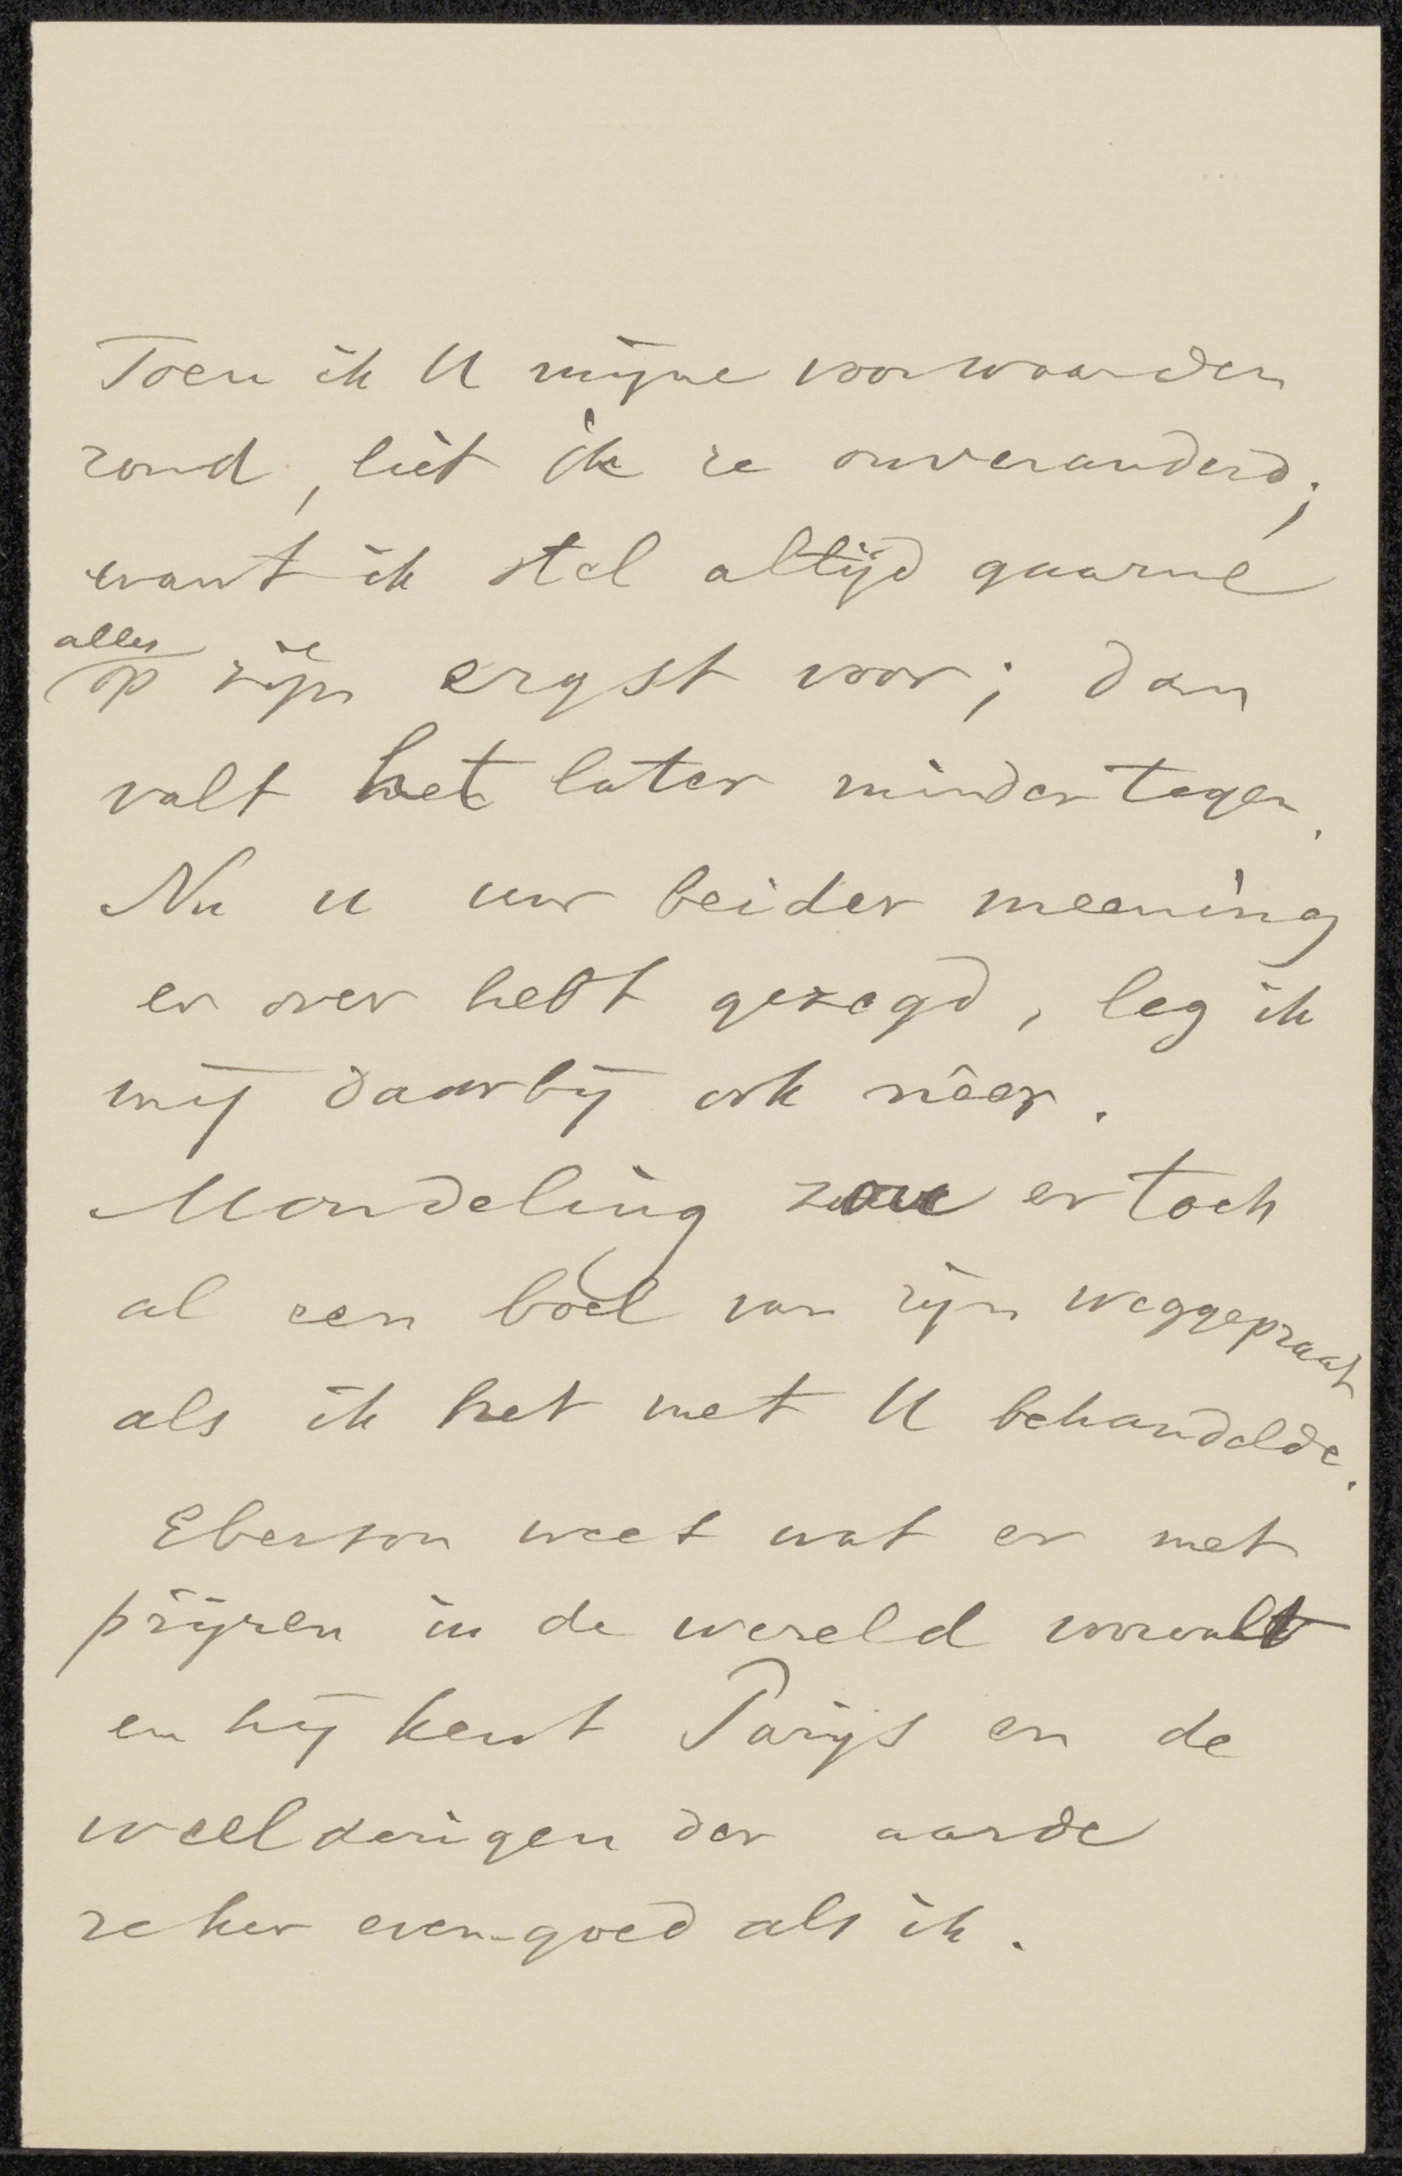 Toen ik U mijne voorwaarden
zond, liet ik ze onveranderd;
want ik stel altijd gaarne
alles
op zijn ergst voor; dan
valt het later minder tegen.
Nu u uw beider meening
er over hebt gezegd, leg ik
mij daarbij ook nêer.
Mondeling zou er toch
al een boel van zijn weggepraat
als ik het met U behandelde.
Eberson weet wat er met
prijzen in de wereld voorvalt
en hij kent Parijs en de
weelderigen der aarde
zeker even-goed als ik.